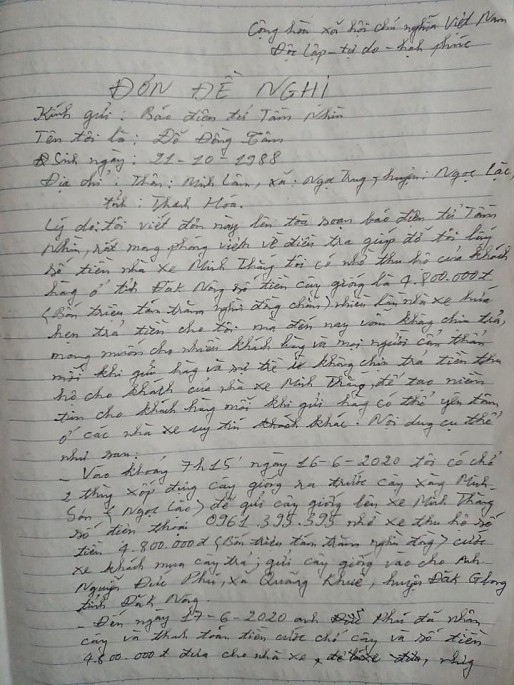 Cộng hòa xã hội chủ nghĩa Việt Nam
Độc lập - tự do - hạnh phúc
ĐƠN ĐỀ NGHỊ
Kính gửi : Báo điện tử Tầm Nhìn
Tên tôi là : Đỗ Đồng Tâm
Sinh ngày : 21-10-1988
Địa chỉ : Thôn : Minh Lâm, xã : Ngọc Trung, huyện : Ngọc Lặc,
tỉnh : Thanh Hoa.
Lý do tôi viết đơn này lên tòa soạn báo điện tử Tầm
Nhìn, rất mong phóng viên về điều tra giúp đỡ tôi lấy
số tiền nhà xe Minh Thắng tôi có nhờ thu hộ của khách
hàng ở tỉnh Đăk Nông số tiền cây giống là 4.800.000đ
(Bốn triệu tám trăm nghìn đồng chẵn) nhiều lần nhà xe hứa
hẹn trả tiền cho tôi mà đến nay vẫn không chịu trả,
mong muốn cho nhiều khách hàng và mọi người cẩn thận
mỗi khi gửi hàng và sử trễ không chịu trả tiền thu
hộ cho khách của nhà xe Minh Thắng, để tạo niềm
tin cho khách hàng mỗi khi gửi hàng có thể yên tâm
ở các nhà xe uy tín khác. Nội dung cụ thể
như sau :
- Vào khoảng 7h15' ngày 16-6-2020 tôi có chở
2 thùng xốp đựng cây giống ra trước cây xăng Minh
Sơn (Ngọc Lặc) để gửi cây giống lên xe Minh Thắng
số điện thoại 0961.395.395 nhờ xe thu hộ số
tiền 4.800.000đ (Bốn triệu tám trăm nghìn đồng) cước
xe khách mua cây trả ; gửi cây giống vào cho Anh
Nguyễn Đức Phú, xã Quảng Khuê, huyện Đăk Glong
tỉnh Đăk Nông
- Đến ngày 17-6-2020 anh Phú đã nhận
cây và thanh toán tiền cước chở cây và số tiền
4.800.000đ đưa cho nhà xe,